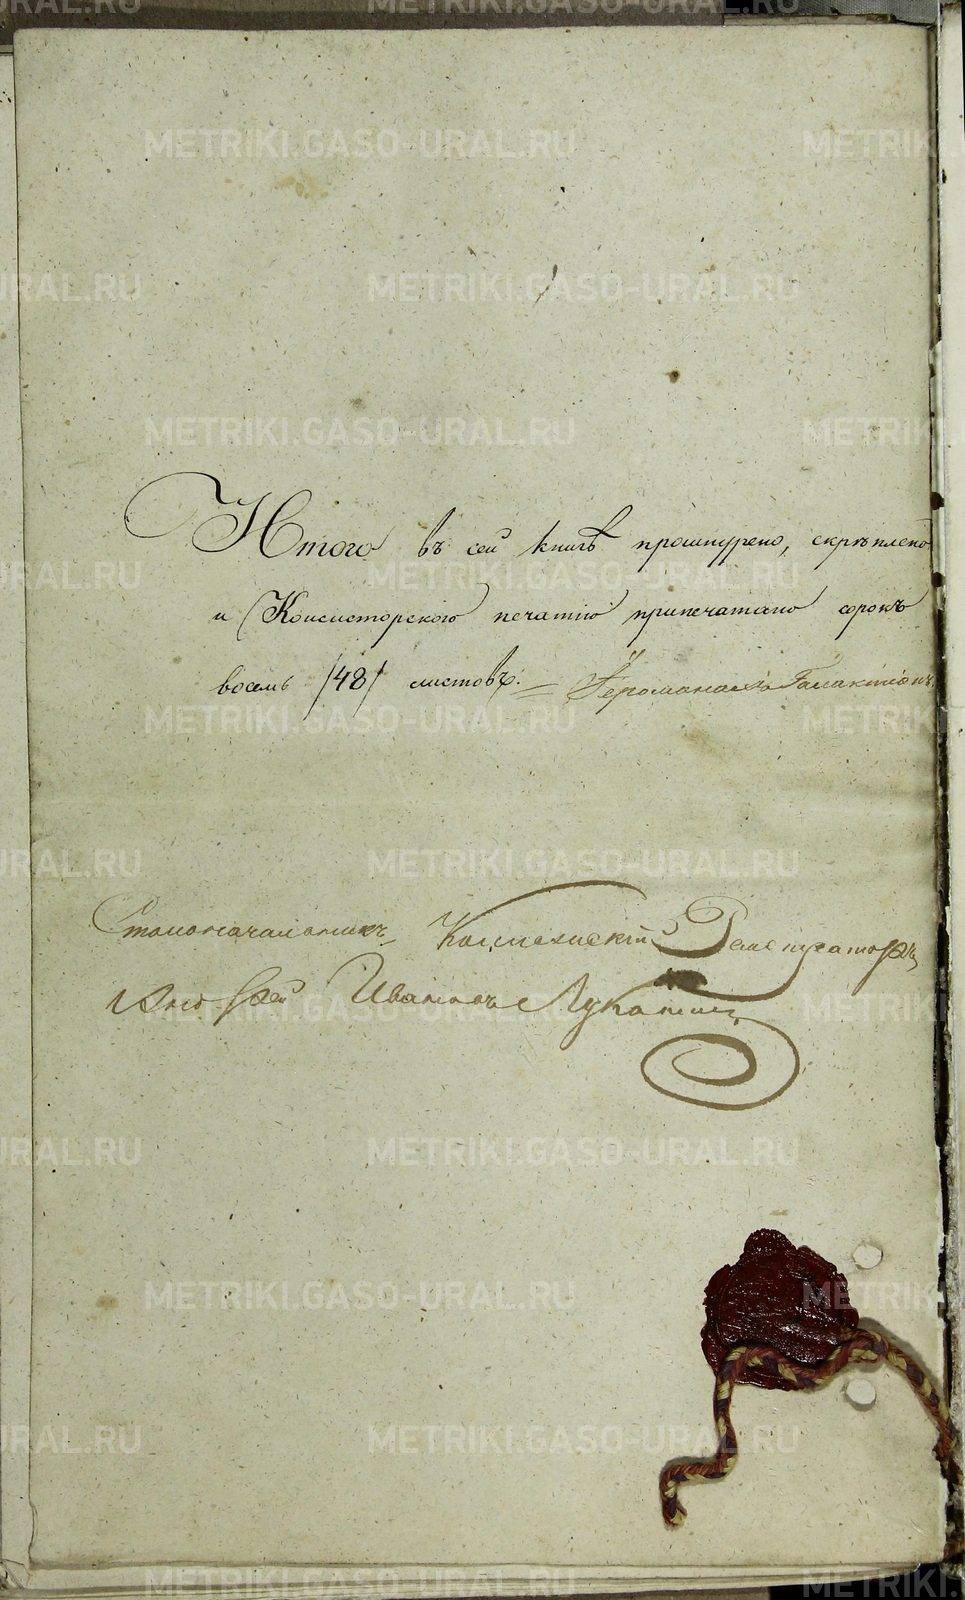 METRIKI.GASO-URAL.RU
Итого въ сей книгѣ прошнурено, скрѣплено
и Консисторскою печатію припечатано сорокъ
восемь /48/ листовъ. — Іеромонахъ Галактіонъ
Столоначальникъ Коллежскій Регистраторъ
Андрей Ивановъ Лукашин